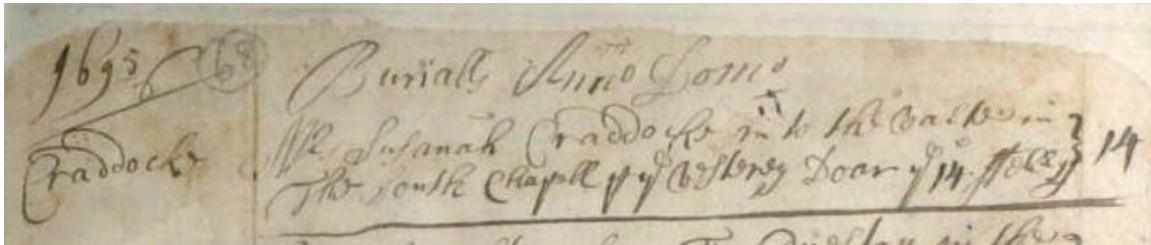 1695/6 68
Burialls Anno Domo
Craddocke
Susanah Craddocke in to the Valte in
The South Chapell by ye Vesterey Doar ye 14 ffeby 14
in the